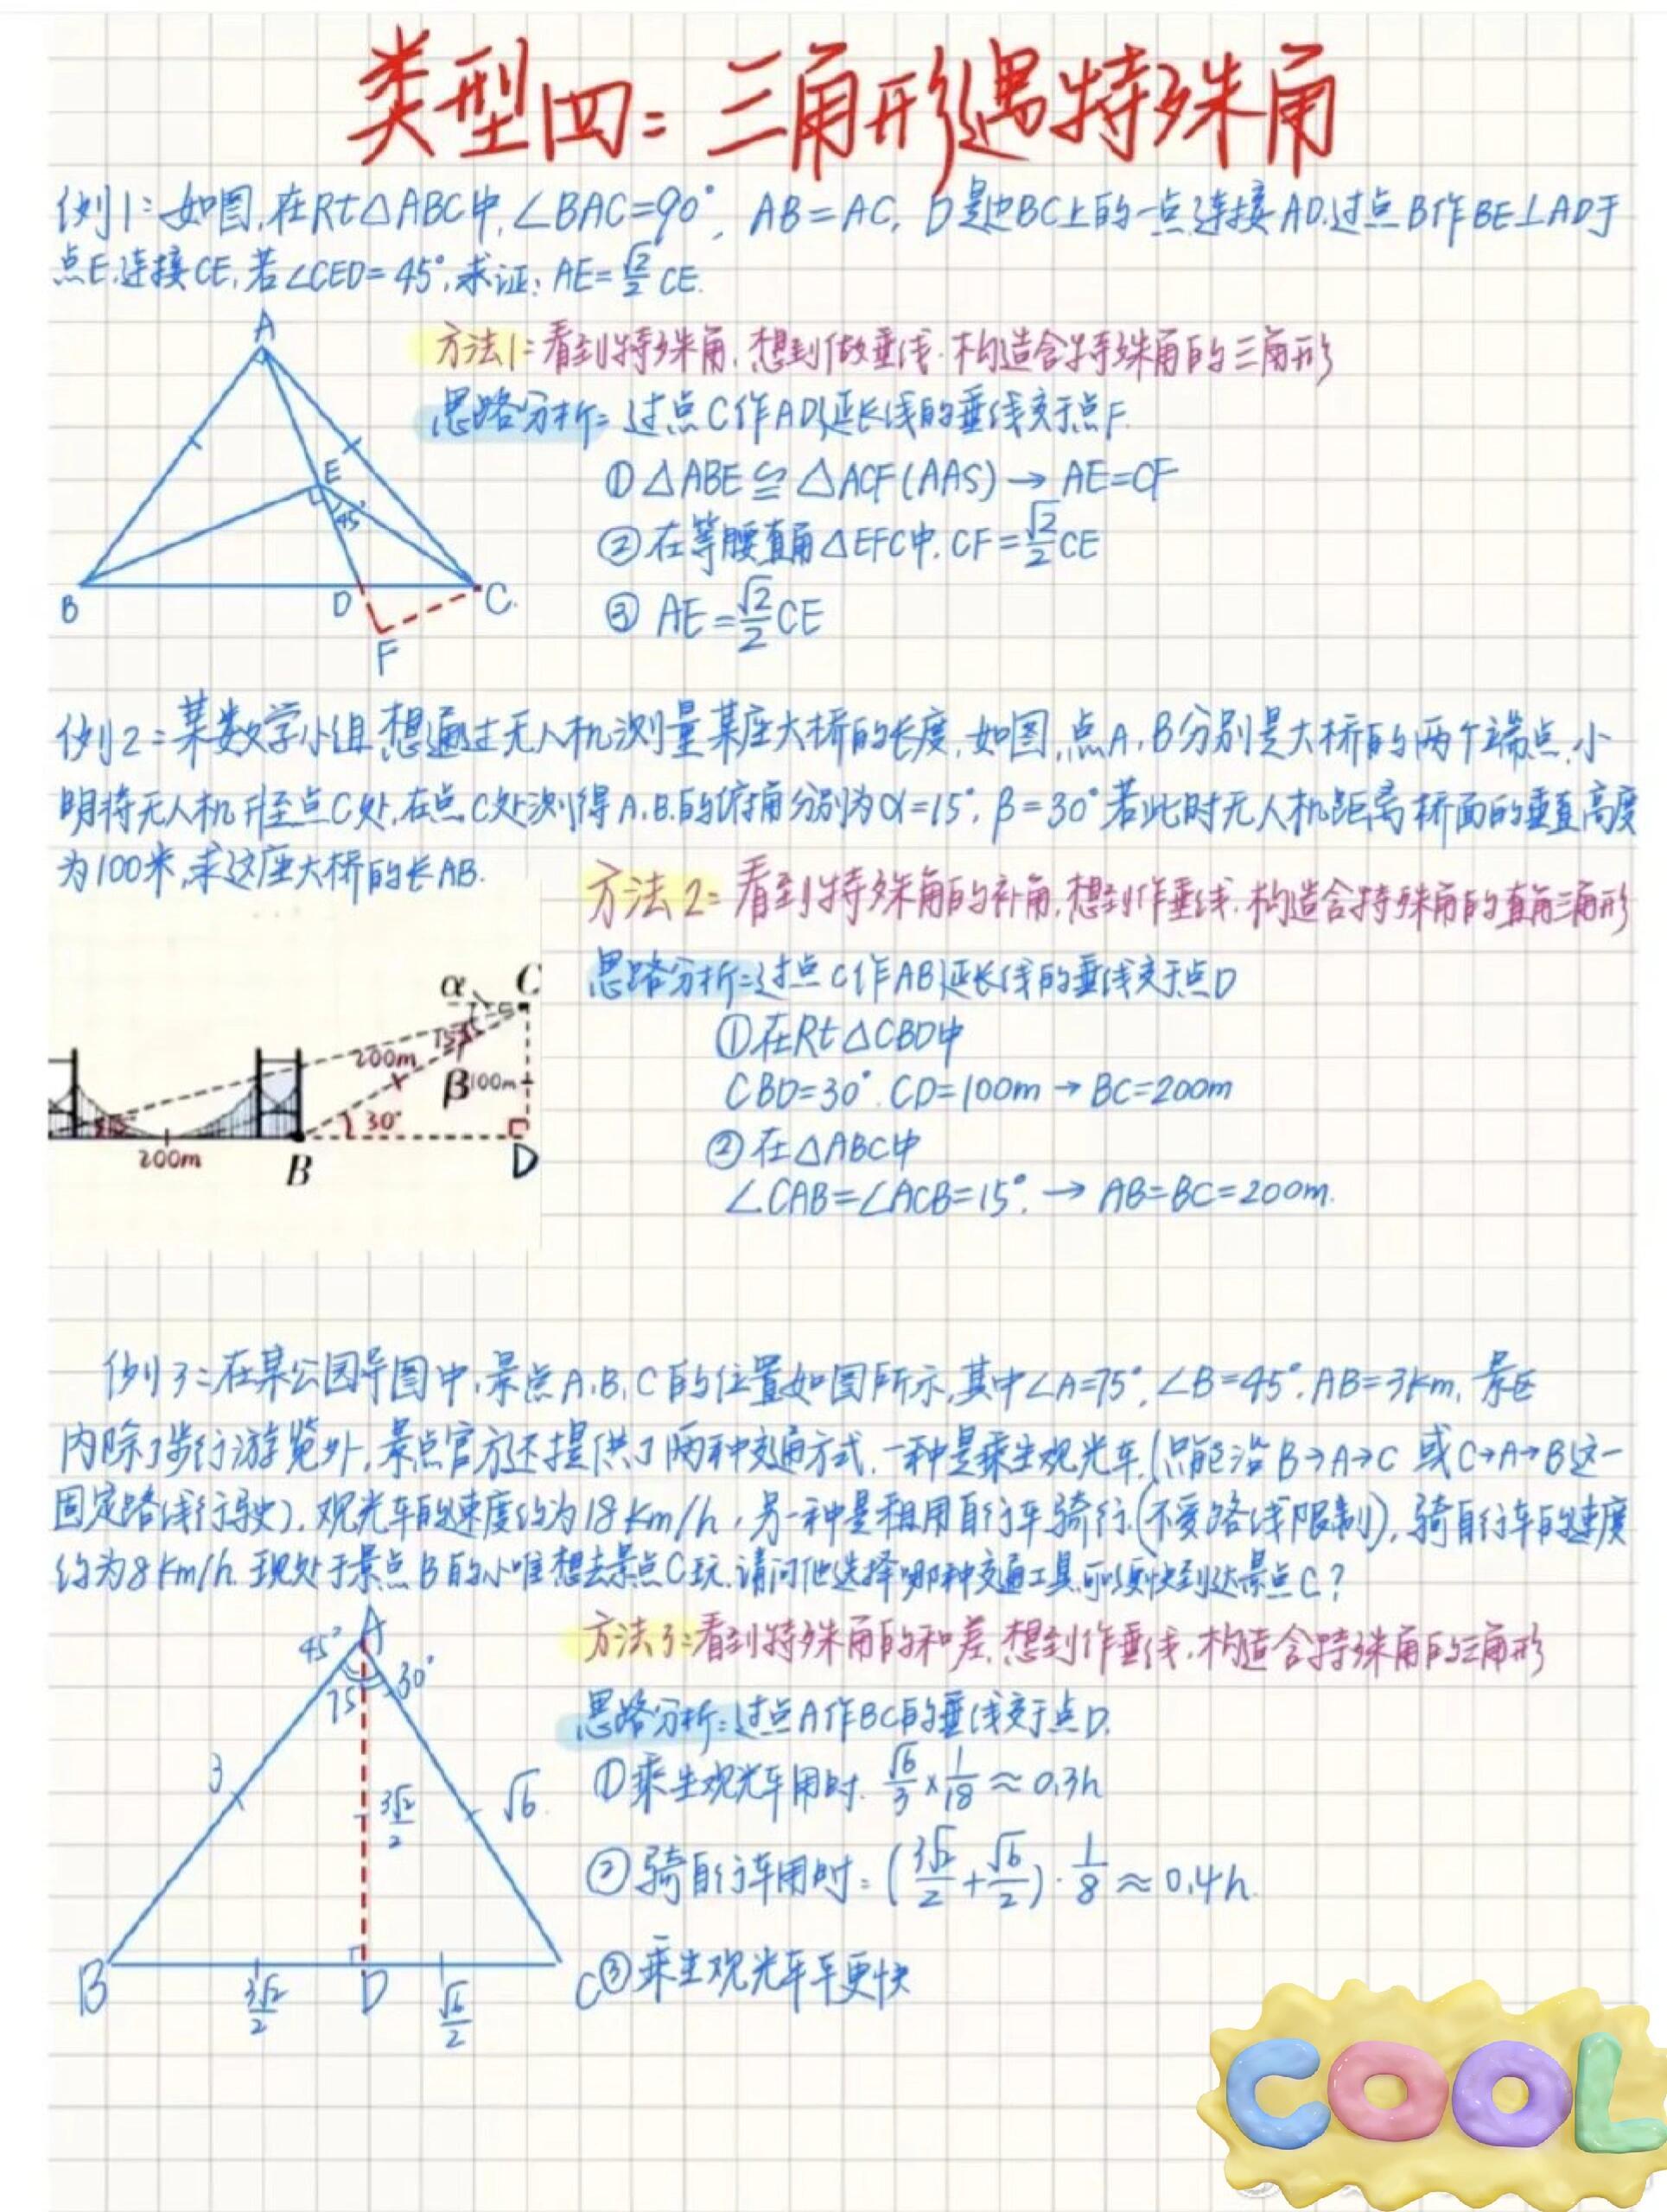 类型四：三角形遇特殊角
例1：如图，在Rt△ABC中，∠BAC=90°，AB=AC，D是边BC上的一点，连接AD，过点B作BE⊥AD于
点E，连接CE，若∠CED=45°，求证：AE=√2/2 CE.
方法1：看到特殊角，想到做垂线，构造含特殊角的三角形
思路分析：过点C作AD延长线的垂线交于点F.
①△ABE≌△ACF(AAS)→AE=CF
②在等腰直角△EFC中，CF=√2/2 CE
③AE=√2/2 CE
A
E
45°
B
D
C.
F
例2：某数学小组想通过无人机测量某座大桥的长度，如图，点A，B分别是大桥的两个端点，小
明将无人机升至点C处，在点C处测得A，B的俯角分别为α=15°，β=30°若此时无人机距离桥面的垂直高度
为100米，求这座大桥的长AB.
方法2：看到特殊角的补角，想到作垂线，构造含特殊角的直角三角形
思路分析：过点C作AB延长线的垂线交于点D
①在Rt△CBD中
CBD=30°.CD=100m→BC=200m
②在△ABC中
∠CAB=∠ACB=15°.→AB=BC=200m.
α
C
200m
β
100m
30°
200m
B
D
例3：在某公园导图中，景点A，B，C的位置如图所示，其中∠A=75°，∠B=45°，AB=3km，景区
内除了步行游览外，景点官方还提供了两种交通方式，一种是乘坐观光车，(只能沿B→A→C或C→A→B这一
固定路线行驶)，观光车的速度约为18km/h，另一种是租用自行车骑行(不受路线限制)，骑自行车的速度
约为8km/h.现处于景点B的小唯想去景点C玩，请问他选择哪种交通工具可更快到达景点C？
方法3：看到特殊角的和差，想到作垂线，构造含特殊角的三角形
思路分析：过点A作BC的垂线交于点D.
①乘坐观光车用时.√6/3×1/18≈0.3h
②骑自行车用时：(3√2/2+√6/2)·1/8≈0.4h.
③乘坐观光车车更快
A
45°
30°
75
3
3√2/2
√6
B
3√2/2
D
√6/2
C
COOL